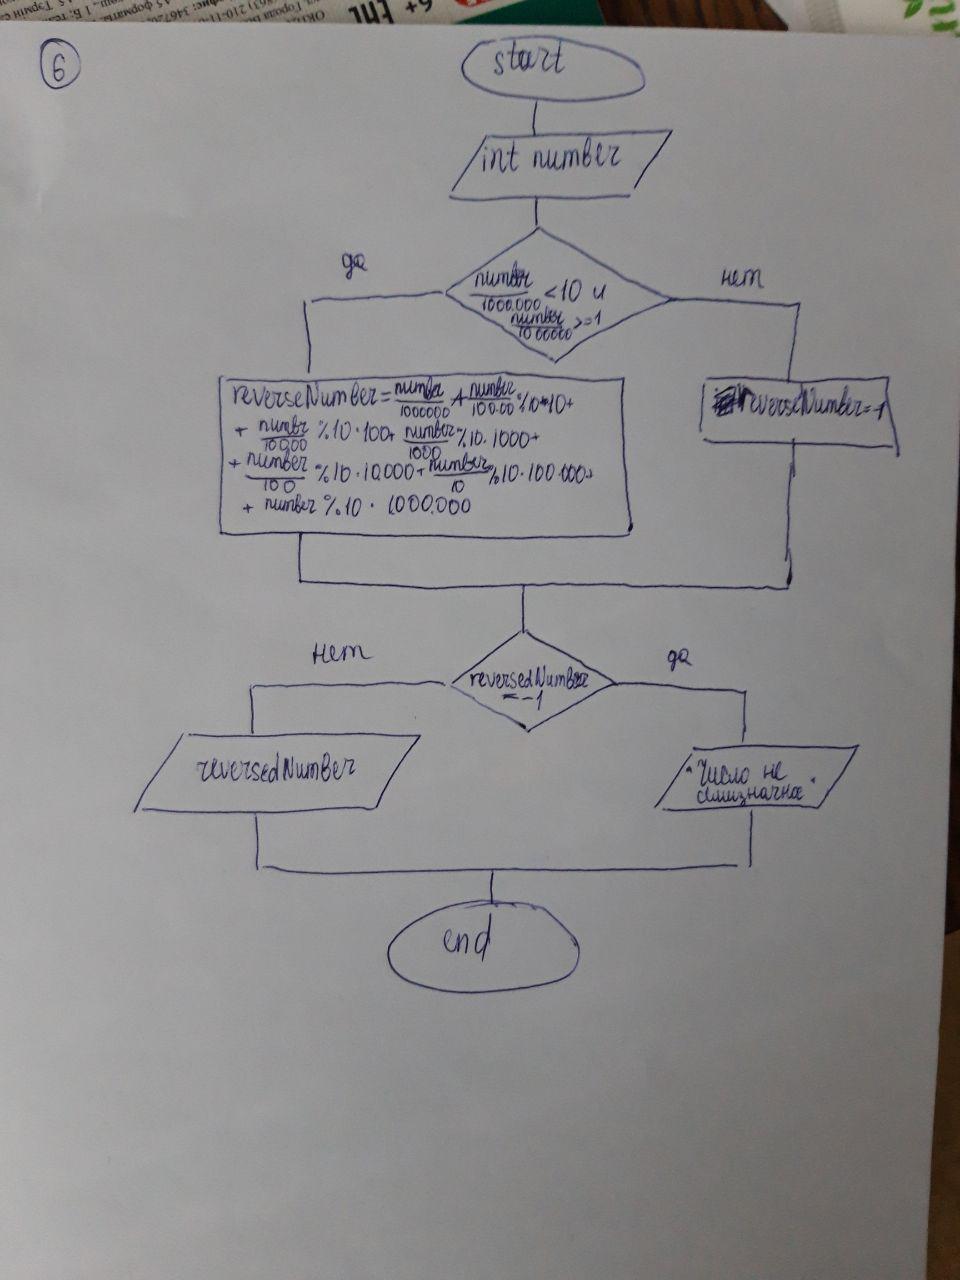 6
start
int number
да
нет
number/1000.000 < 10 и
number/1000000 >= 1
reverseNumber = number/1000000 + number/100.00 % 10*10 +
+ number/10.000 % 10 · 100 + number/1000 % 10 · 1000 +
+ number/100 % 10 · 10.000 + number/10 % 10 · 100.000 +
+ number % 10 · 1.000.000
reverseNumber = -1
нет
да
reversedNumber
= -1
reversedNumber
"Число не
семизначное"
end